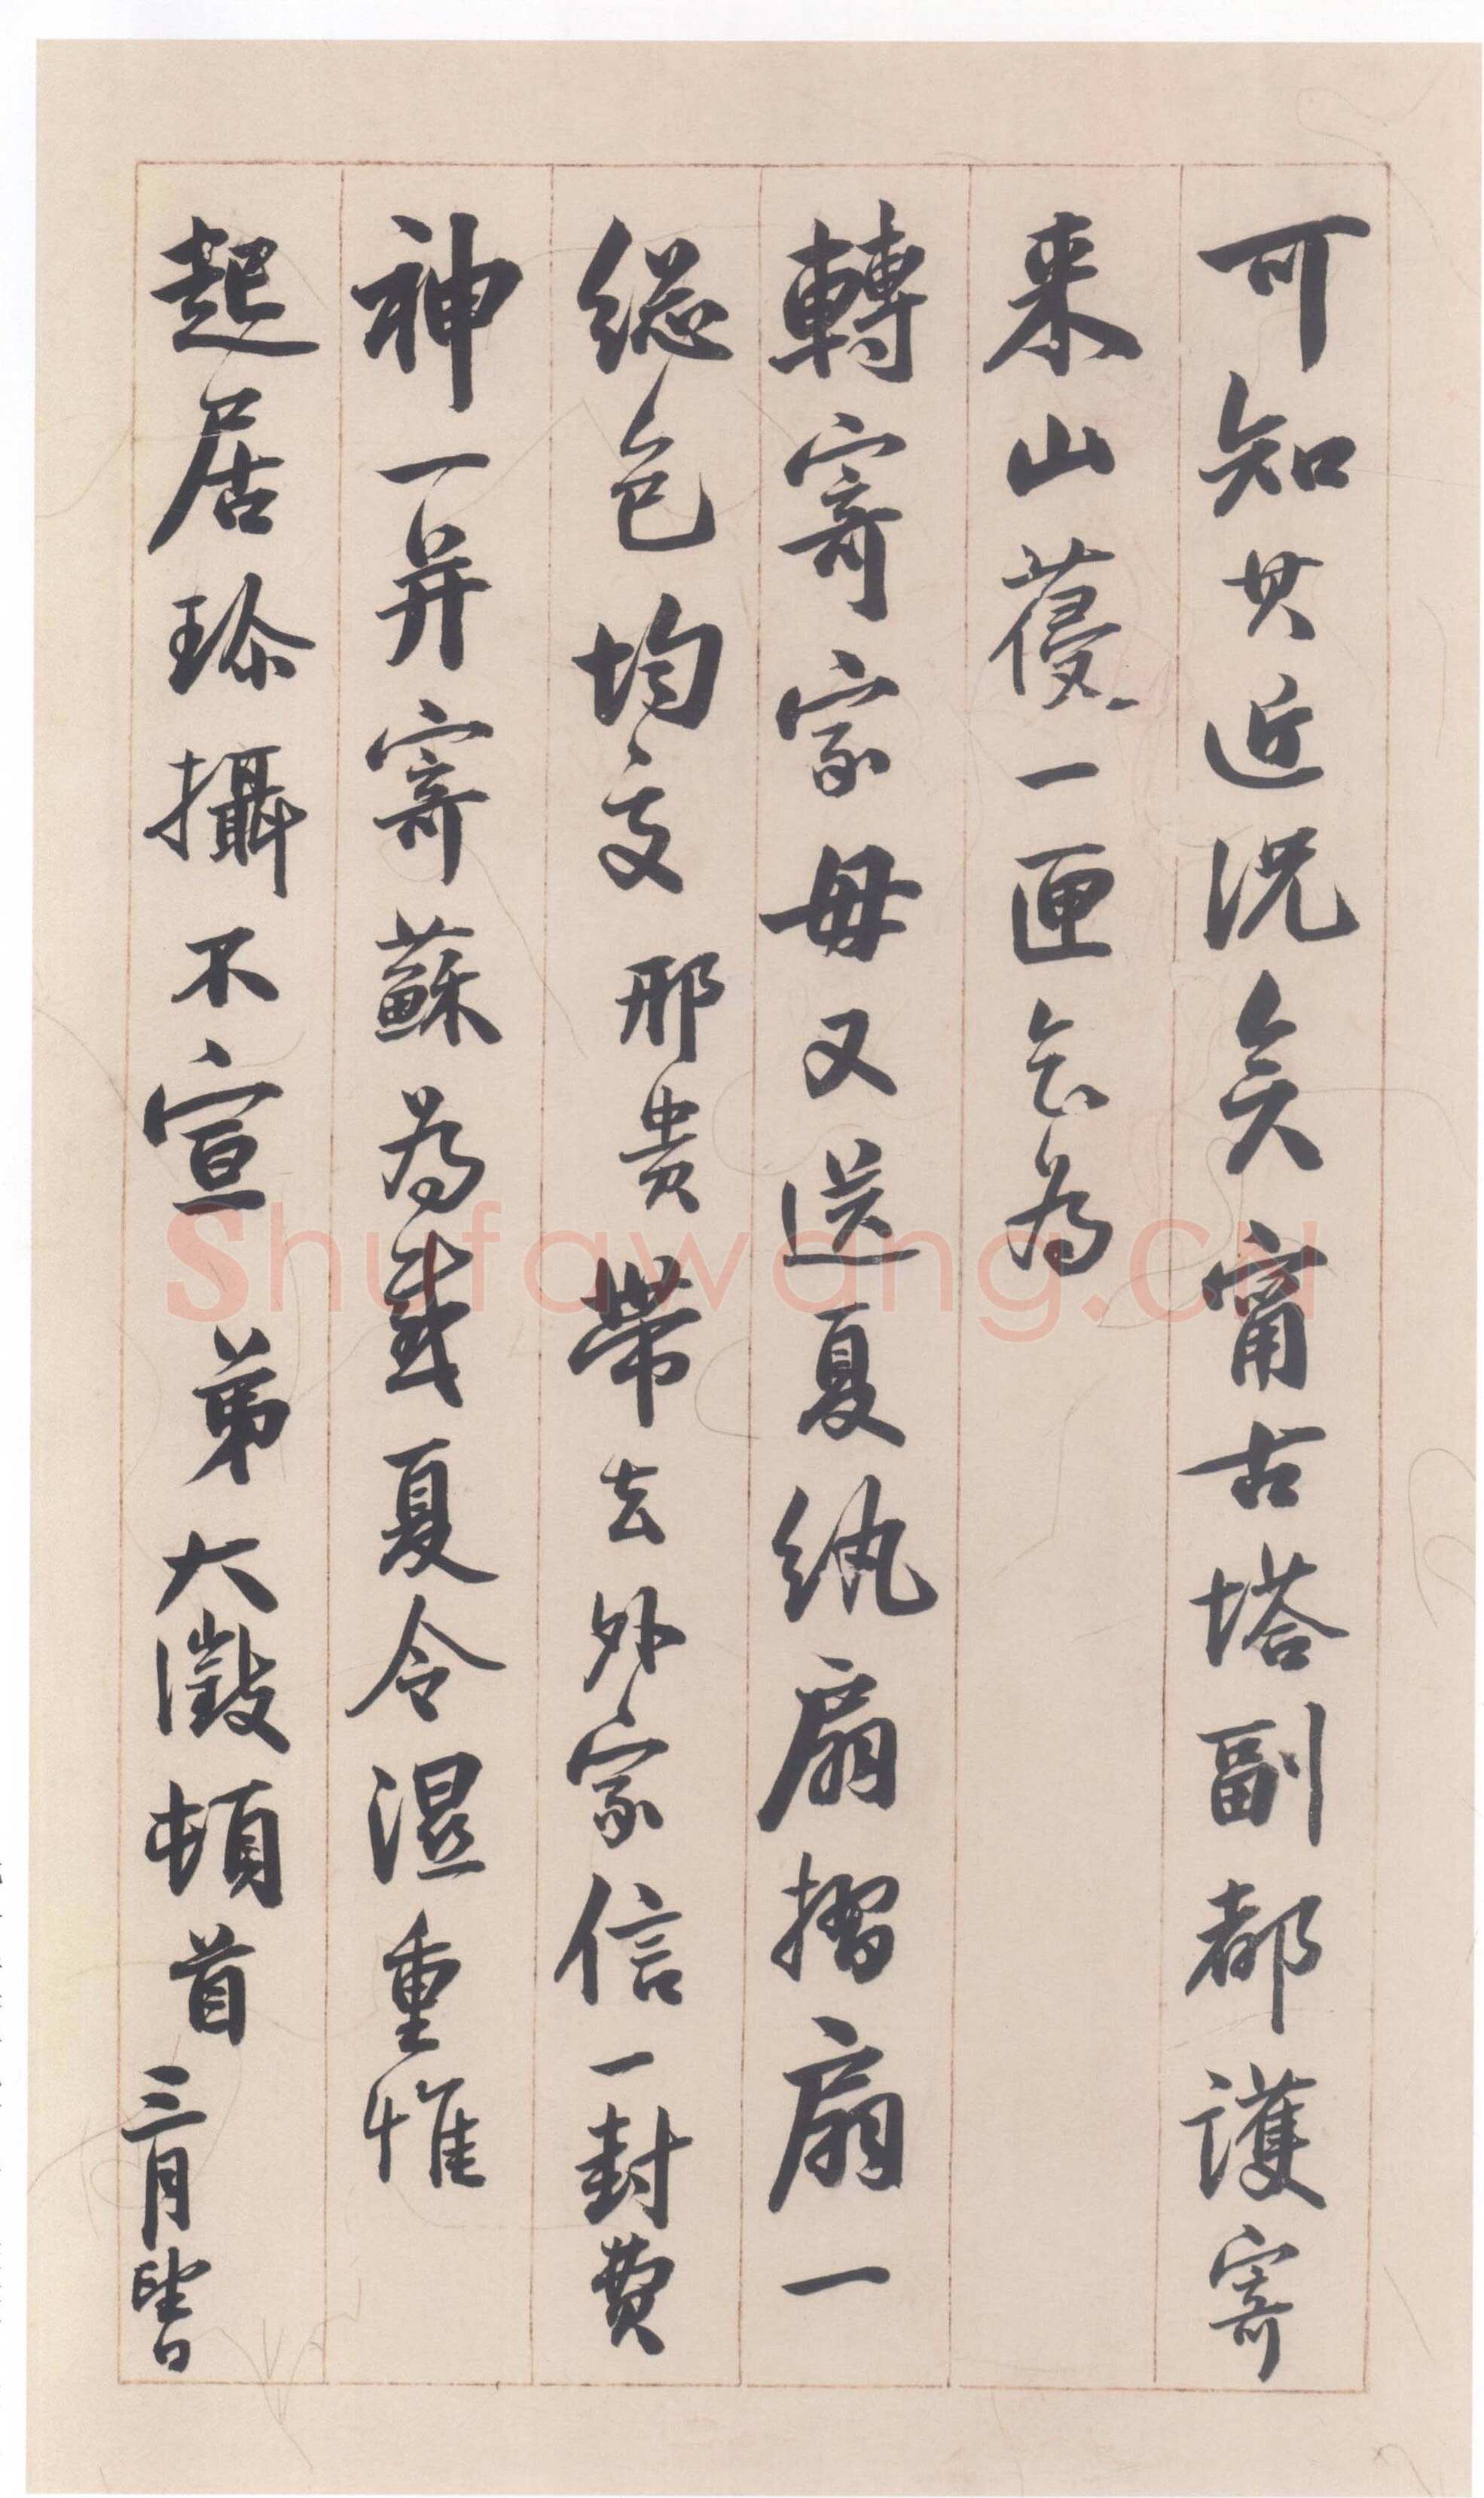 可知其近況矣甯古塔副都護寄
来山葠一匣乞为
轉寄家母又送夏紈扇摺扇一
総包均交邢貴帶去外家信一封費
神一并寄蘇为感夏令濕重惟
起居珍攝不宣 弟大澂頓首 三月望日
Shufawang.CN